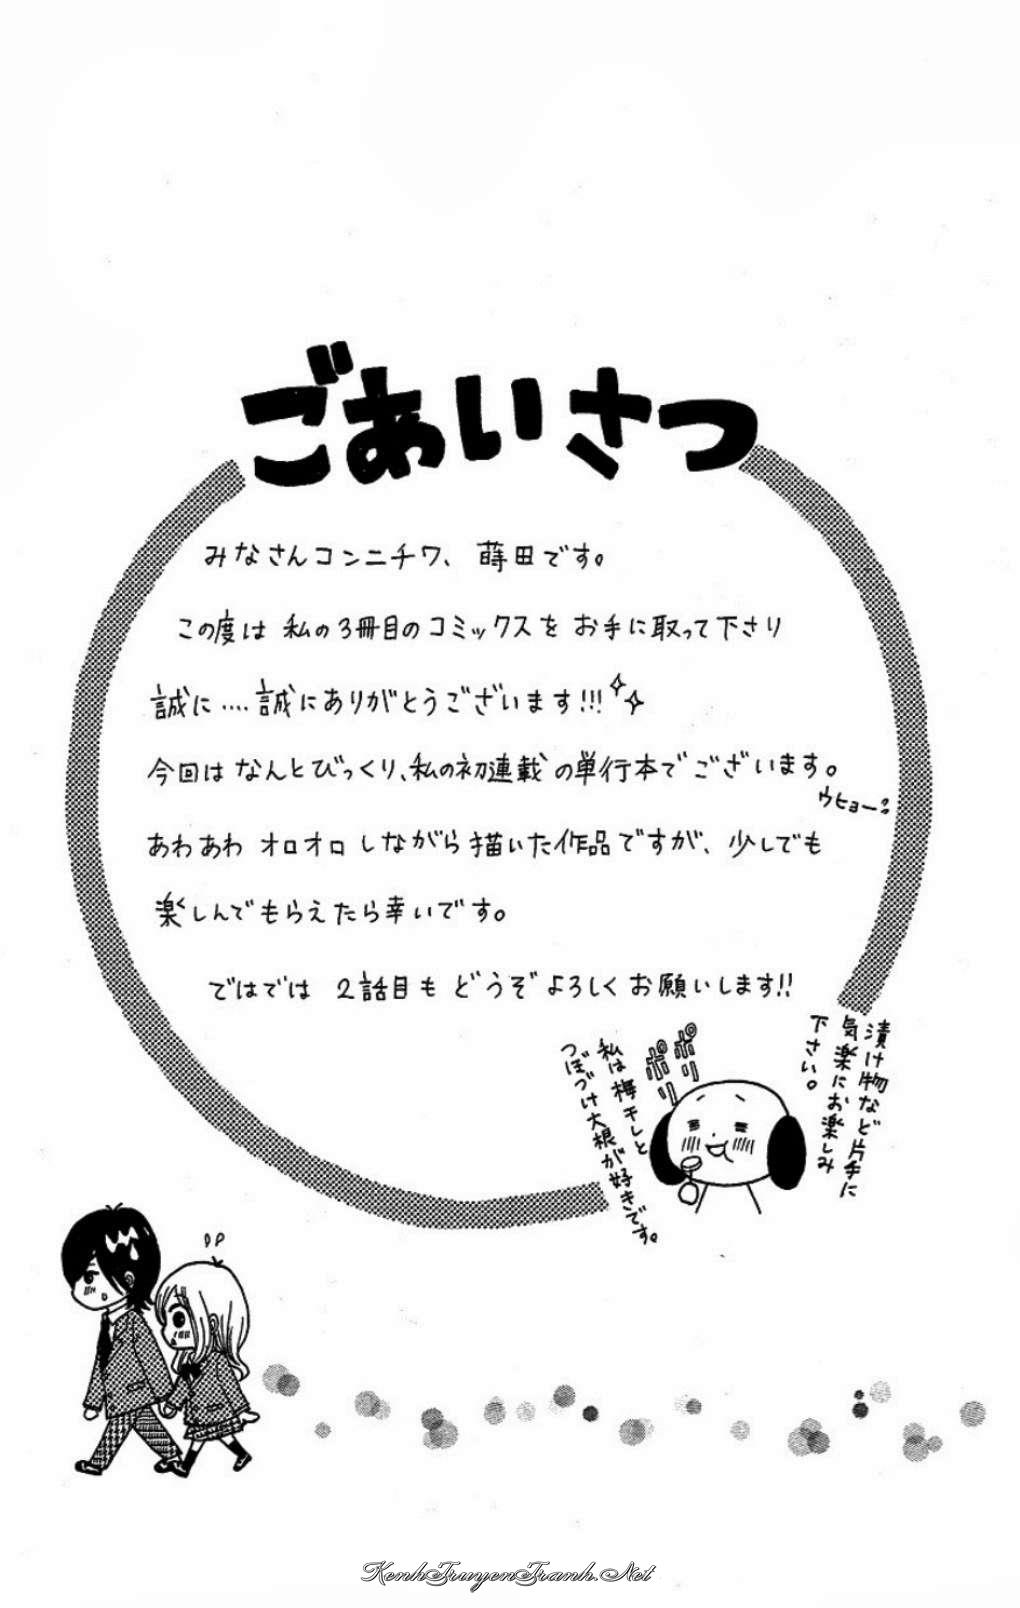 ごあいさつ
みなさんコンニチワ、蒔田です。
この度は 私の3冊目のコミックスを お手に取って下さり
誠に‥‥誠にありがとうございます!!!
今回は なんとびっくり、私の初連載の単行本でございます。
ウヒョー!!
あわあわ オロオロ しながら描いた作品ですが、少しでも
楽しんでもらえたら幸いです。
ではでは 2話目も どうぞ よろしく お願いします!!
漬け物など片手に
気楽にお楽しみ
下さい。
ポリ
ポリ
私は梅干しと
つぼづけ大根が好きです。
KenhTruyenTranh.Net